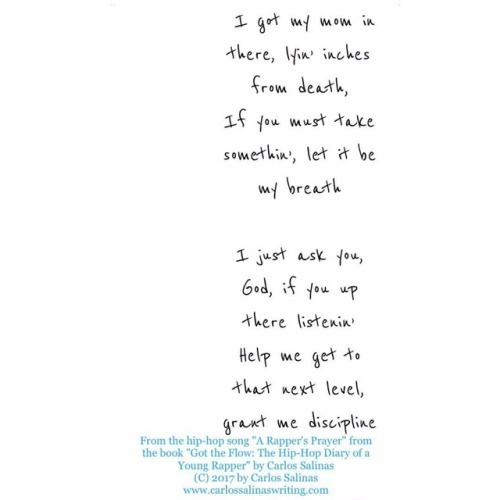 I got my mom in
there, lyin' inches
from death,
If you must take
somethin', let it be
my breath
I just ask you,
God, if you up
there listenin'
Help me get to
that next level,
grant me discipline
From the hip-hop song "A Rapper's Prayer" from
the book "Got the Flow: The Hip-Hop Diary of a
Young Rapper" by Carlos Salinas
(C) 2017 by Carlos Salinas
www.carlossalinaswriting.com